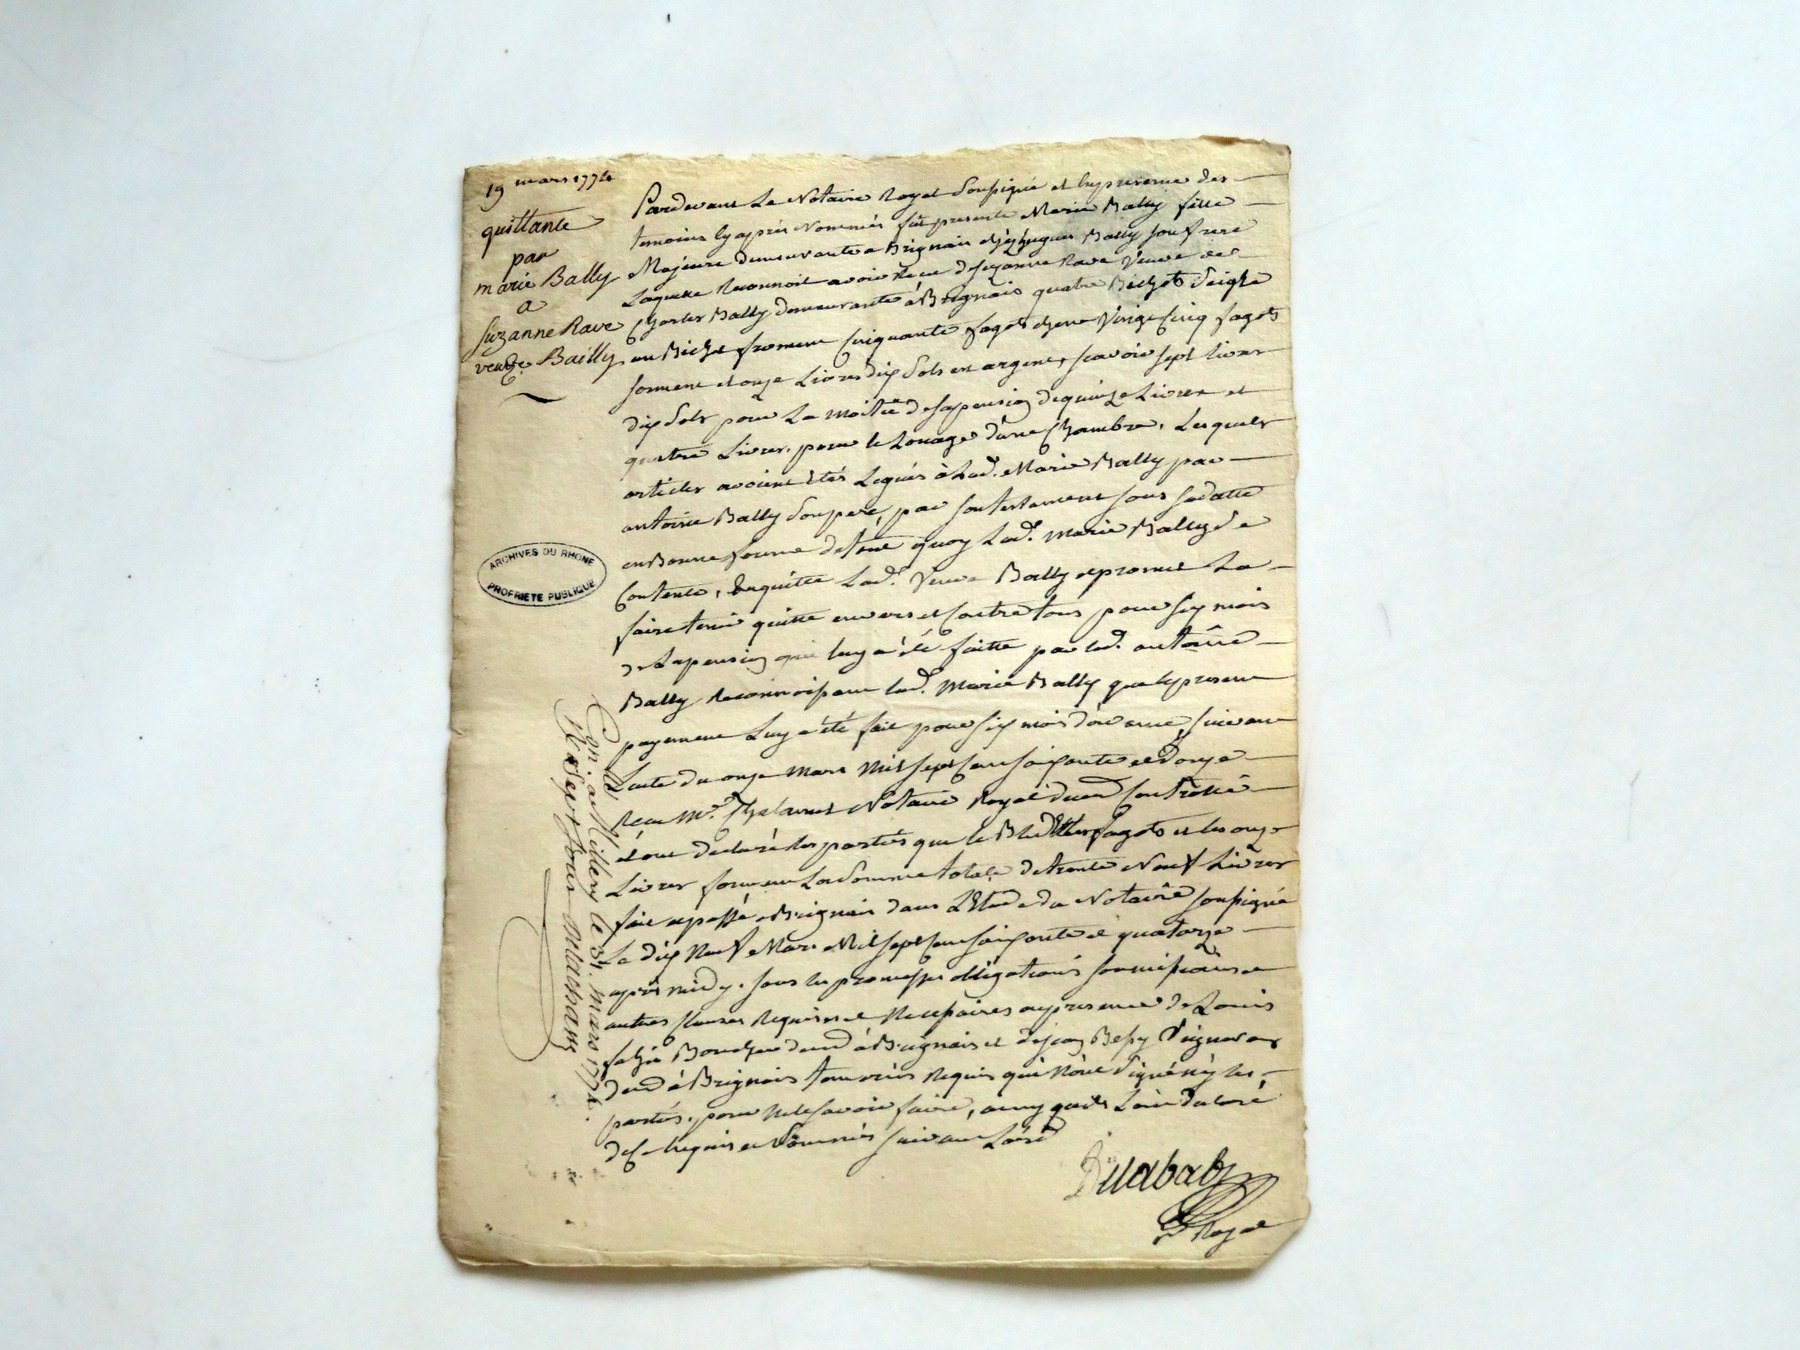 19 mars 1774
quittance
par
marie Bally
a
Suzanne Rave
veuve Bailly
Pardevant Le Notaire Royal Soussigné et En presence des
temoins cy après Nommés fut presente Marie Bally fille
Majeure demeurante a Brignais chez hugues Bally son frere
Laquelle Reconnoit avoir Reçu de Suzanne Rave Veuve de
Charles Bally demeurante à Brignais quatre Bichets seigle
un Bichet froment Cinquante fagots chene Vingt Cinq fagots
serment et onze Livres dix Sols en argent, scavoir sept livres
dix Sols pour La moitié de sa pension de quinze Livres et
quatre Livres pour le Louage d'une Chambre, Lesquels
articles avoient Etés Legués à Lad. Marie Bally par
antoine Bally Son pere, par son testament sous sa datte
en Bonne forme de tout quoy Lad. Marie Bally se
Contente, En quitte Lad. Veuve Bally et promet La
faire tenir quitte envers et Contre tous pour six mois
de La pension qui luy a été faitte par led. antoine
Bally Reconnoissant lad. Marie Bally que le present
payement Luy a été fait pour six mois d'avance, suivant
L'acte du onze Mars Mil sept Cent soixante et douze
Recu Me. Notaire Royal Duement Controllé
et ont declaré les parties que le Bled Les fagots et les onze
Livres forment La Somme totale de trente Neuf Livres
fait et passé a Brignais dans L'Etude du Notaire soussigné
Le dix Neuf Mars Mil sept Cent soixante et quatorze
après midy. sous les promesses obligations soumissions et
autres Clauses Requises et Necessaires en presence de Louis
Boucher demt à Brignais et de jean Vigneron
demt à Brignais temoins Requis qui N'ont Signé ny les
parties, pour ne Le savoir faire, ainsy qu'ils L'ont declaré
de ce Enquis et Sommés suivant L'ord
Dellabaly
Nre Royal
Con. à Millery le 31 mars 1774.
R. sept sous
ARCHIVES DU RHONE
PROPRIETE PUBLIQUE